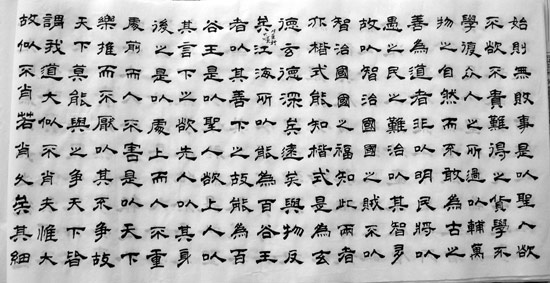 始則無敗事是以聖人欲
不欲不貴難得之貨學不
學復眾人之所過以輔萬
物之自然而不敢為古之
善為道者非以明民將以
愚之民之難治以其智多
故以智治國國之賊不以
智治國國之福知此兩者
亦楷式能知楷式是為玄
德玄德深矣遠矣與物反
矣江海所以能為百谷王
者以其善下之故能為百
谷王是以聖人欲上人以
其言下之欲先人以其身
後之是以處上而人不重
處前而人不害是以天下
樂推而不厭以其不爭故
天下莫能與之爭天下皆
謂我道大似不肖夫惟大
故似不肖若肖久矣其細